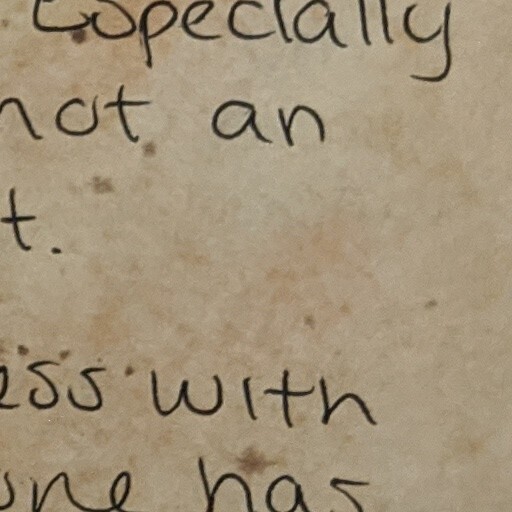 Especially
not an
t.
ess with
one has